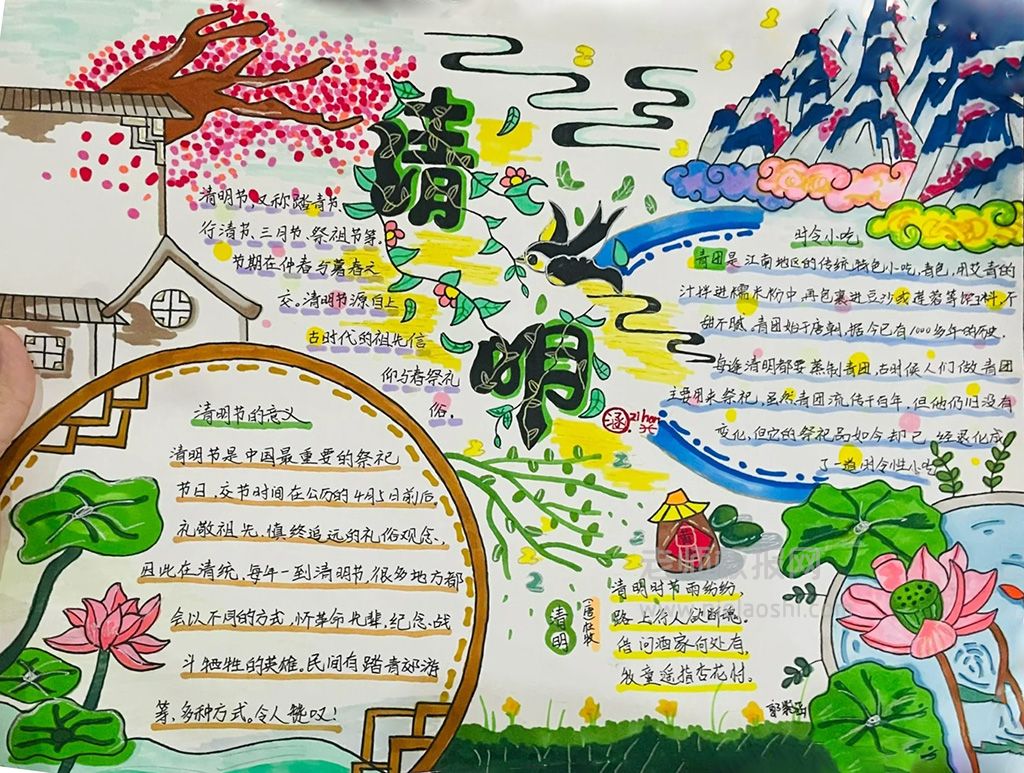 清明
清明节,又称踏青节、
行清节、三月节、祭祖节等。
节期在仲春与暮春之
交。清明节源自上
古时代的祖先信
仰与春祭礼
俗。
时令小吃
青团是江南地区的传统特色小吃,青色,用艾青的
汁拌进糯米粉中,再包裹进豆沙或莲蓉等馅料,不
甜不腻。青团始于唐朝,据今已有1000多年的历史,
每逢清明都要蒸制青团,古时候人们做青团
主要用来祭祀,虽然青团流传千百年,但他仍旧没有
变化,但它的祭祀品如今却已经退化成
了一道时令性小吃
清明节的意义
清明节是中国最重要的祭祀
节日,交节时间在公历的4月5日前后,
礼敬祖先、慎终追远的礼俗观念、
因此在清统,每年一到清明节,很多地方都
会以不同的方式,怀革命先辈,纪念、战
斗牺牲的英雄。民间有踏青郊游
等、多种方式。令人赞叹!
涵
清明
唐 杜牧
清明时节雨纷纷,
路上行人欲断魂。
借问酒家何处有,
牧童遥指杏花村。
老师板报网